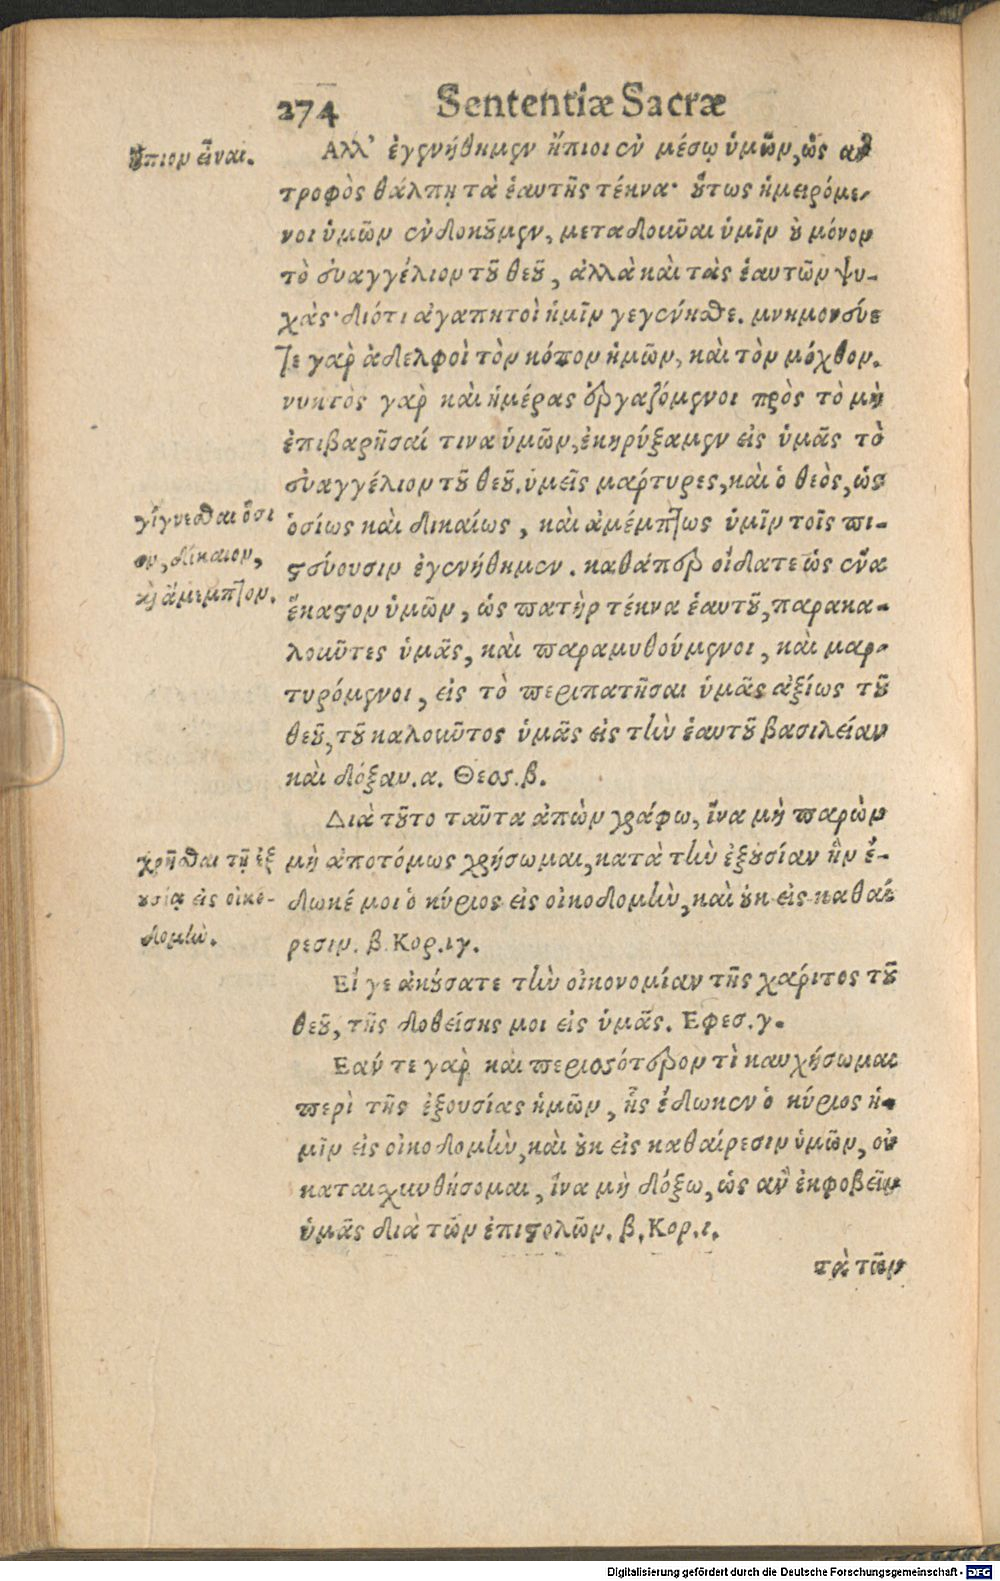 274 Sententiæ Sacræ
ἤπιον εἶναι.
Αλλ' ἐγενήθημεν ἤπιοι ἐν μέσῳ ὑμῶν, ὡς ἂν
τροφὸς θάλπῃ τὰ ἑαυτῆς τέκνα· οὕτως ἱμειρόμε-
νοι ὑμῶν εὐδοκοῦμεν, μεταδοῦναι ὑμῖν οὐ μόνον
τὸ εὐαγγέλιον τοῦ θεοῦ, ἀλλὰ καὶ τὰς ἑαυτῶν ψυ-
χάς· διότι ἀγαπητοὶ ἡμῖν γεγένησθε. μνημονεύε
τε γὰρ ἀδελφοὶ τὸν κόπον ἡμῶν, καὶ τὸν μόχθον.
νυκτὸς γὰρ καὶ ἡμέρας ἐργαζόμενοι πρὸς τὸ μὴ
ἐπιβαρῆσαί τινα ὑμῶν, ἐκηρύξαμεν εἰς ὑμᾶς τὸ
εὐαγγέλιον τοῦ θεοῦ. ὑμεῖς μάρτυρες, καὶ ὁ θεὸς, ὡς
γίγνεσθαι ὅσι
ον, δίκαιον,
καὶ ἄμεμπτον.
ὁσίως καὶ δικαίως, καὶ ἀμέμπτως ὑμῖν τοῖς πι-
στεύουσιν ἐγενήθημεν. καθάπερ οἴδατε ὡς ἕνα
ἕκαστον ὑμῶν, ὡς πατὴρ τέκνα ἑαυτοῦ, παρακα-
λοῦντες ὑμᾶς, καὶ παραμυθούμενοι, καὶ μαρ-
τυρόμενοι, εἰς τὸ περιπατῆσαι ὑμᾶς ἀξίως τοῦ
θεοῦ, τοῦ καλοῦντος ὑμᾶς εἰς τὴν ἑαυτοῦ βασιλείαν
καὶ δόξαν. α. Θεσ. β.
Διὰ τοῦτο ταῦτα ἀπὼν γράφω, ἵνα μὴ παρὼν
χρῆσθαι τῇ ἐξ
ουσίᾳ εἰς οἰκο-
δομὴν.
μὴ ἀποτόμως χρήσωμαι, κατὰ τὴν ἐξουσίαν ἣν ἔ-
δωκέ μοι ὁ κύριος εἰς οἰκοδομὴν, καὶ οὐκ εἰς καθαί
ρεσιν. β. Κορ. ιγ.
Εἴ γε ἀκούσατε τὴν οἰκονομίαν τῆς χάριτος τοῦ
θεοῦ, τῆς δοθείσης μοι εἰς ὑμᾶς. Εφεσ. γ.
Εάν τε γὰρ καὶ περισσότερον τὶ καυχήσωμαι
περὶ τῆς ἐξουσίας ἡμῶν, ἧς ἔδωκεν ὁ κύριος ἡ-
μῖν εἰς οἰκοδομὴν, καὶ οὐκ εἰς καθαίρεσιν ὑμῶν, οὐ
καταισχυνθήσομαι, ἵνα μὴ δόξω, ὡς ἂν ἐκφοβεῖν
ὑμᾶς διὰ τῶν ἐπιστολῶν. β. Κορ. ι.
τὰ τῶν
Digitalisierung gefördert durch die Deutsche Forschungsgemeinschaft - DFG